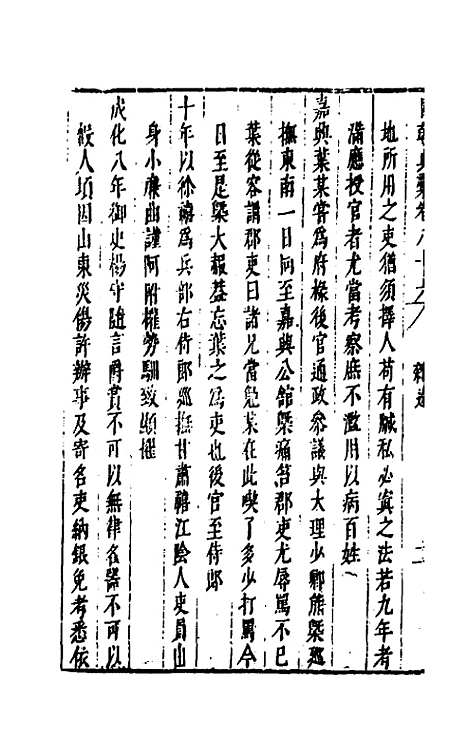 地所用之吏猶須擇人苟有贓私必寘之法若九年考
滿應授官者尤當考察庶不濫用以病百姓
嘉興葉某嘗為府椽後官通政參議與大理少卿熊槩巡
撫東南一日同至嘉興公館槩痛笞郡吏尤辱罵不已
葉從容謂郡吏曰諸兄當勉某在此喫了多少打罵今
日至是槩大報蓋忘葉之為吏也後官至侍郎
十年以徐禧為兵部右侍郎巡撫甘肅禧江陰人吏員出
身小廉曲謹阿附權勢馴致顯擢
成化八年御史楊守隨言爵賞不可以無律名器不可以
假人頃因山東災傷許辦事及寄名吏納銀免考悉依